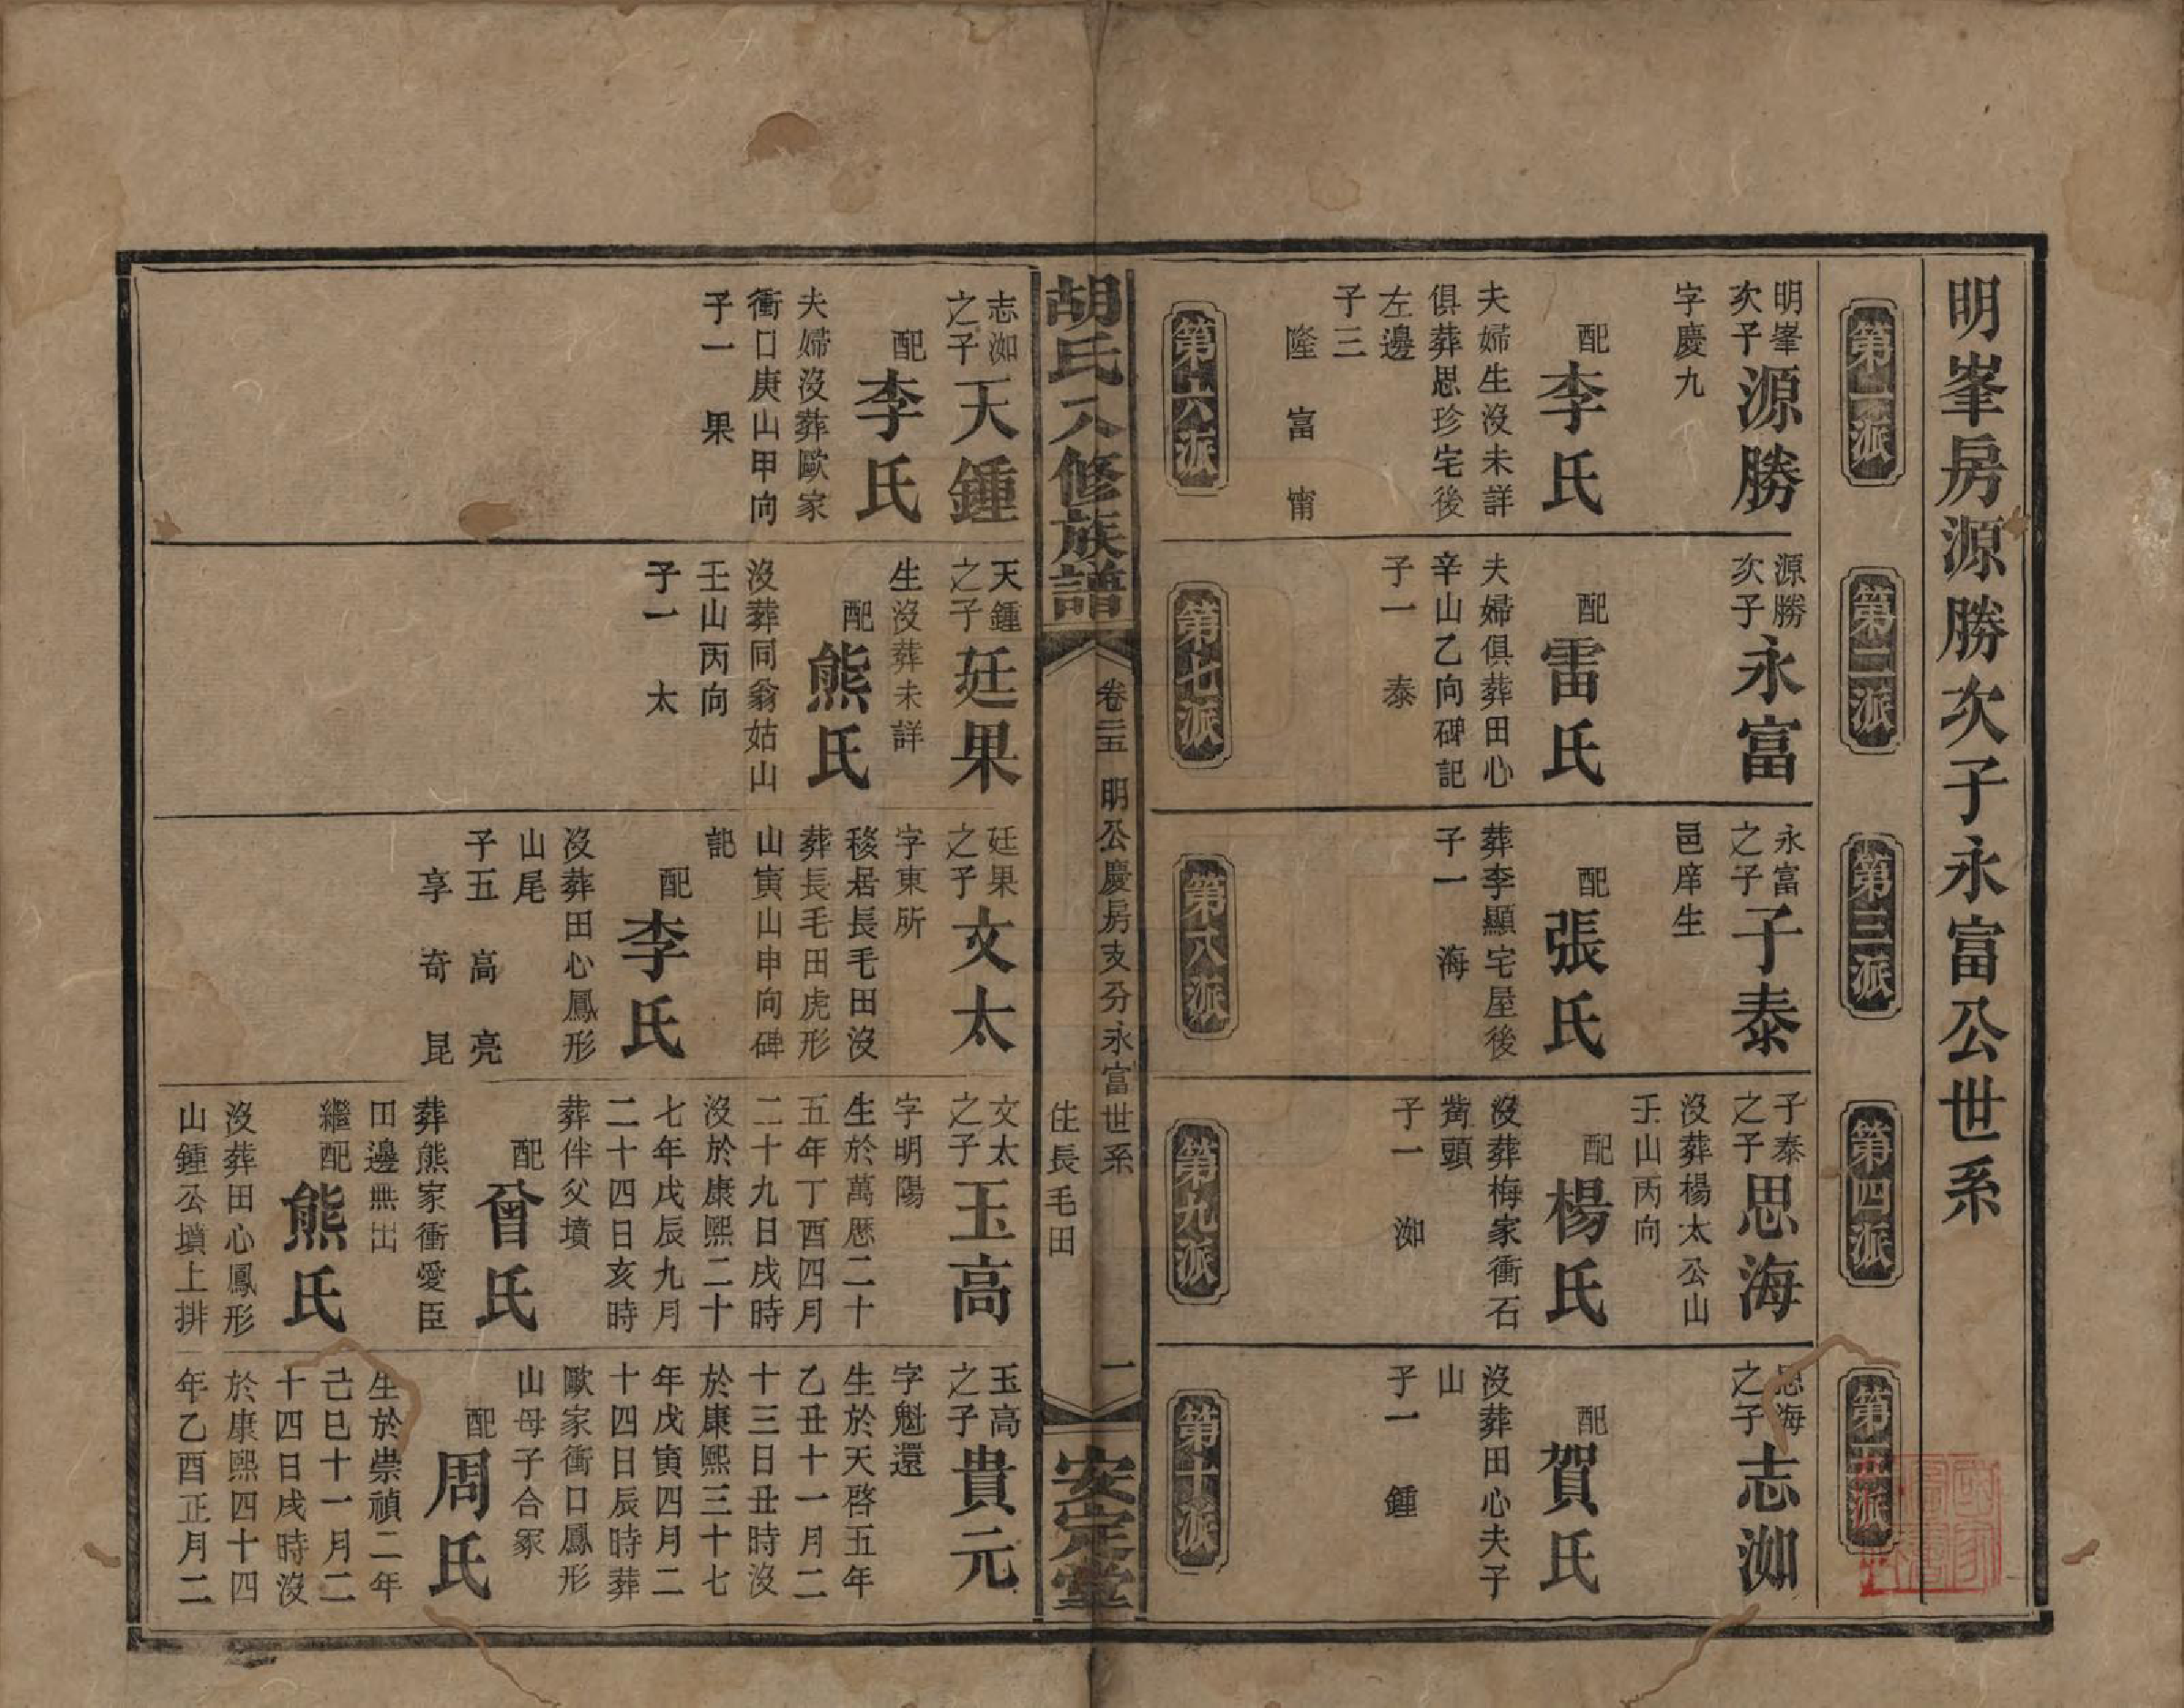 明峯房源勝次子永富公世系
第一派
第二派
第三派
第四派
第五派
明峯
次子
源勝
字慶九
配
李氏
夫婦生沒未詳
俱葬思珍宅後
左邊
子三
隆富甯
源勝
次子
永富
配
雷氏
夫婦俱葬田心
辛山乙向碑記
子一 泰
永富
之子
子泰
邑庠生
配
張氏
葬李顯宅屋後
子一 海
子泰
之子
思海
沒葬楊太公山
壬山丙向
配
楊氏
沒葬梅家衝石
觜頭
子一 洳
思海
之子
志洳
配
賀氏
沒葬田心夫子
山
子一 鍾
第六派
第七派
第八派
第九派
第十派
胡氏八修族譜
卷二五 明公慶房支分永富世系
住長毛田
一
安定堂
志洳
之子
天鍾
配
李氏
夫婦沒葬歐家
衝口庚山甲向
子一 果
天鍾
之子
廷果
生沒葬未詳
配
熊氏
沒葬同翁姑山
壬山丙向
子一 太
廷果
之子
文太
字東所
移居長毛田沒
葬長毛田虎形
山寅山申向碑
記
配
李氏
沒葬田心鳳形
山尾
子五 高 亮
享 奇 昆
文太
之子
玉高
字明陽
生於萬歷二十
五年丁酉四月
二十九日戌時
沒於康熙二十
七年戊辰九月
二十四日亥時
葬伴父墳
配
曾氏
葬熊家衝愛臣
田邊無出
繼配
熊氏
沒葬田心鳳形
山鍾公墳上排
玉高
之子
貴元
字魁還
生於天啓五年
乙丑十一月二
十三日丑時沒
於康熙三十七
年戊寅四月二
十四日辰時葬
歐家衝口鳳形
山母子合冢
配
周氏
生於崇禎二年
己巳十一月二
十四日戌時沒
於康熙四十四
年乙酉正月二